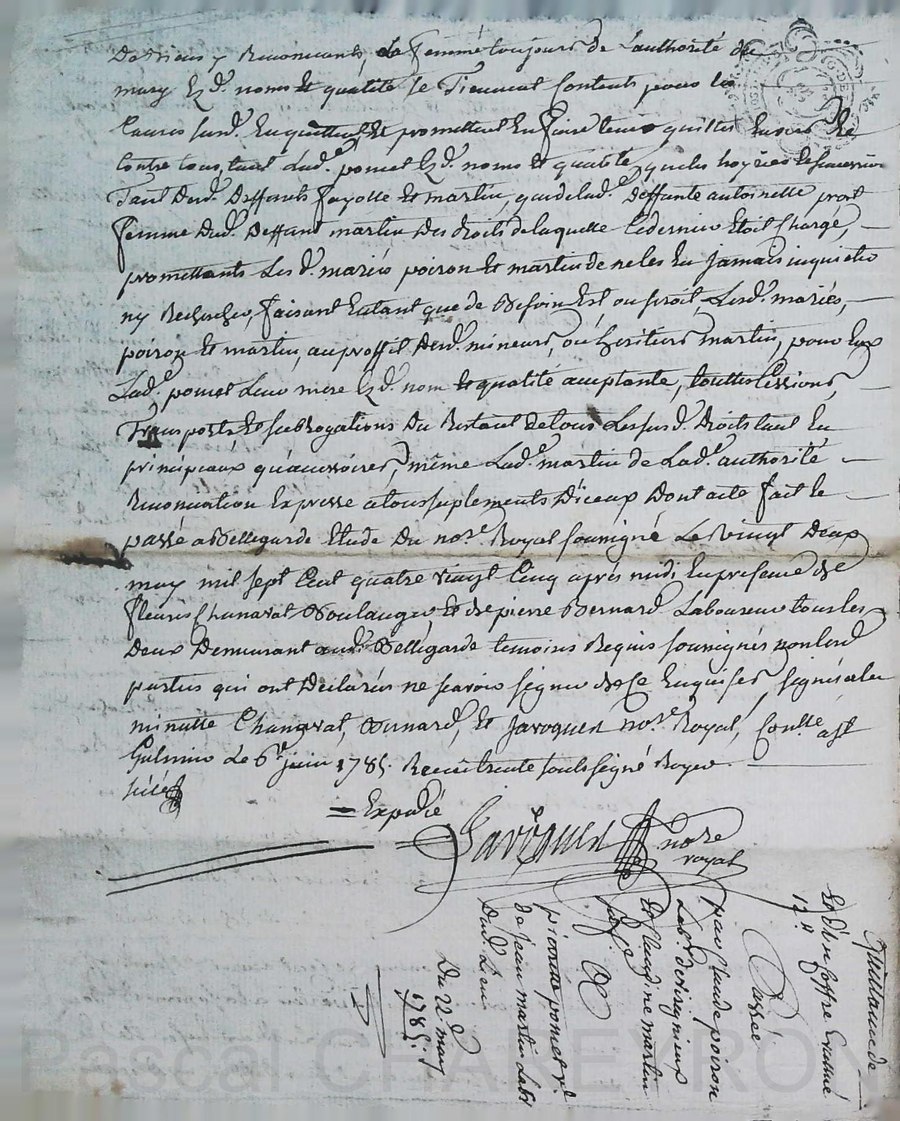 De Prieur y Renoncants, la femme toujours de L'authorité du
mary Ez d. noms et qualité se Tiennent Contents pour les
Causes susd. En quittent et promettent En faire tenir quittes Envers et
Contre tous, tant Lad.e pomet Ez d. noms et qualité, que les hoyries et succession
Tant Desd. Deffunts fayolle Et martin, que de lad.e Deffante antoinette prost
femme Dud. Deffant martin Des droits de laquelle Ce dernier Etoit Chargé,
promettants Les d. mariés poiron Et martin de ne les En jamais inquieter
ny Rechercher, faisant Entant que de Besoin Est, ou seroit, Lesd. mariés,
poiron Et martin, au proffit Desd. mineurs, ou héritiers martin, pour Eux
Lad.e pomet Leur mere Ez d. nom Et qualité acceptante, touttes Cessions
Transports Et subrogations Du Restant De tous Les susd. Droits tant En
principeaux qu'accessoires, même Lad.e martin de Lad.e authorité
Renonciation Expresse a tous suplements D'iceux Dont acte fait Et
passé a Bellegarde Etude Du no.re Royal soussigné Le Vingt Deux
may mil sept Cent quatre vingt Cinq après midi En presence de
fleuris Chanavat Boulanger, Et de pierre Bernard Laboureur tous les
Deux Demeurant aud. Bellegarde temoins Requis soussignés non lesd.
parties qui ont Declarées ne scavoir signer de ce Enquises, signés a la
minutte Chanavat, Bernard, Et Javoquen no.re Royal, Con.lle a St
Galmier Le 6.e juin 1785. Recu trente sols signé Royer
= Expedié
Javoquen no.re
royal
Quittance de
12.tt
Passée
par Claude poiron
Et Claudine martin
pierrette pomet v.e
de jean martin Lab.r
Dud. Lieu
Du 22.e may
1785.